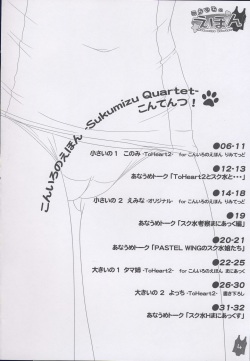 こんいろの
えほん
こんいろのえほん -Sukumizu Quartet-
こんてんつ！
●06-11
小さいの1 このみ -ToHeart2- for こんいろのえほん りみてっど
●12-13
あなうめトーク「ToHeart2とスク水と・・・」
●14-18
小さいの2 えみな -オリジナル- for こんいろのえほん りみてっど
●19
あなうめトーク「スク水考察まにあっく編」
●20-21
あなうめトーク「PASTEL WINGのスク水娘たち」
●22-25
大きいの1 タマ姉 -ToHeart2- for こんいろのえほん まにあっく
●26-30
大きいの2 よっち -ToHeart2- 書き下ろし
●31-32
あなうめトーク「スク水Hまにあっくす」
4